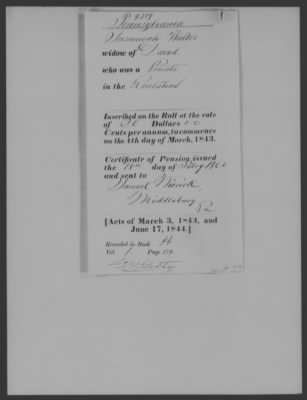 Pennsylvania
Susannah Walter
widow of David
who was a Private
in the Revolution
Inscribed on the Roll at the rate
of 36 Dollars
Cents per annum, to commence
on the 4th day of March, 1843.
Certificate of Pension issued
the day of
and sent to
Samuel
Middleburg
Pa
[Acts of March 3, 1843, and
June 17, 1844.]
Recorded in Book A
Vol. 1. Page